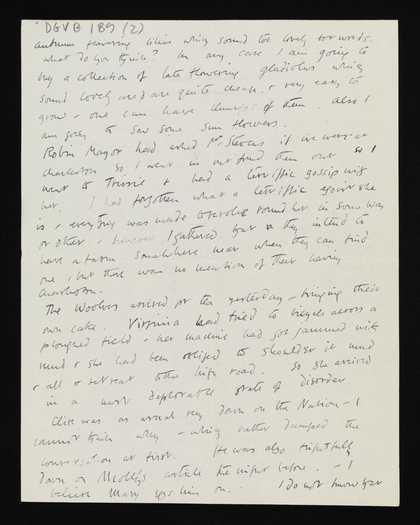 DGVB 189 (2)
autumn flowering lilies which sound too lovely for words.
what do you think? In any case I am going to
buy a collection of late flowering gladiolus which
sound lovely and are quite cheap & very easy to
grow & one can have of them. Also I
am going to sow some sun flowers.
Robin Mayor had asked Mrs Stevens if we were at
Charleston so I went in and find them out so I
went to Trussie & had a terrific gossip with
her. I had forgotten what a terrific egoist she
is & everything was made to revolve round her in some way
or other. I gathered that they intend to
have a farm somewhere near when they can find
one, but there was no mention of their having
Charleston.
The Woolves arrived for tea yesterday - bringing their
own cake. Virginia had tried to bicycle across a
ploughed field & her machine had got jammed with
mud & she had been obliged to shoulder it mud
& all & retreat to the high road. So she arrived
in a most deplorable state of disorder
Clive was as usual very down on the Nation - I
cannot think why - which rather damped the
conversation at first. He was also frightfully
down on article the night before. - I
believe Mary eggs him on. I do not know you